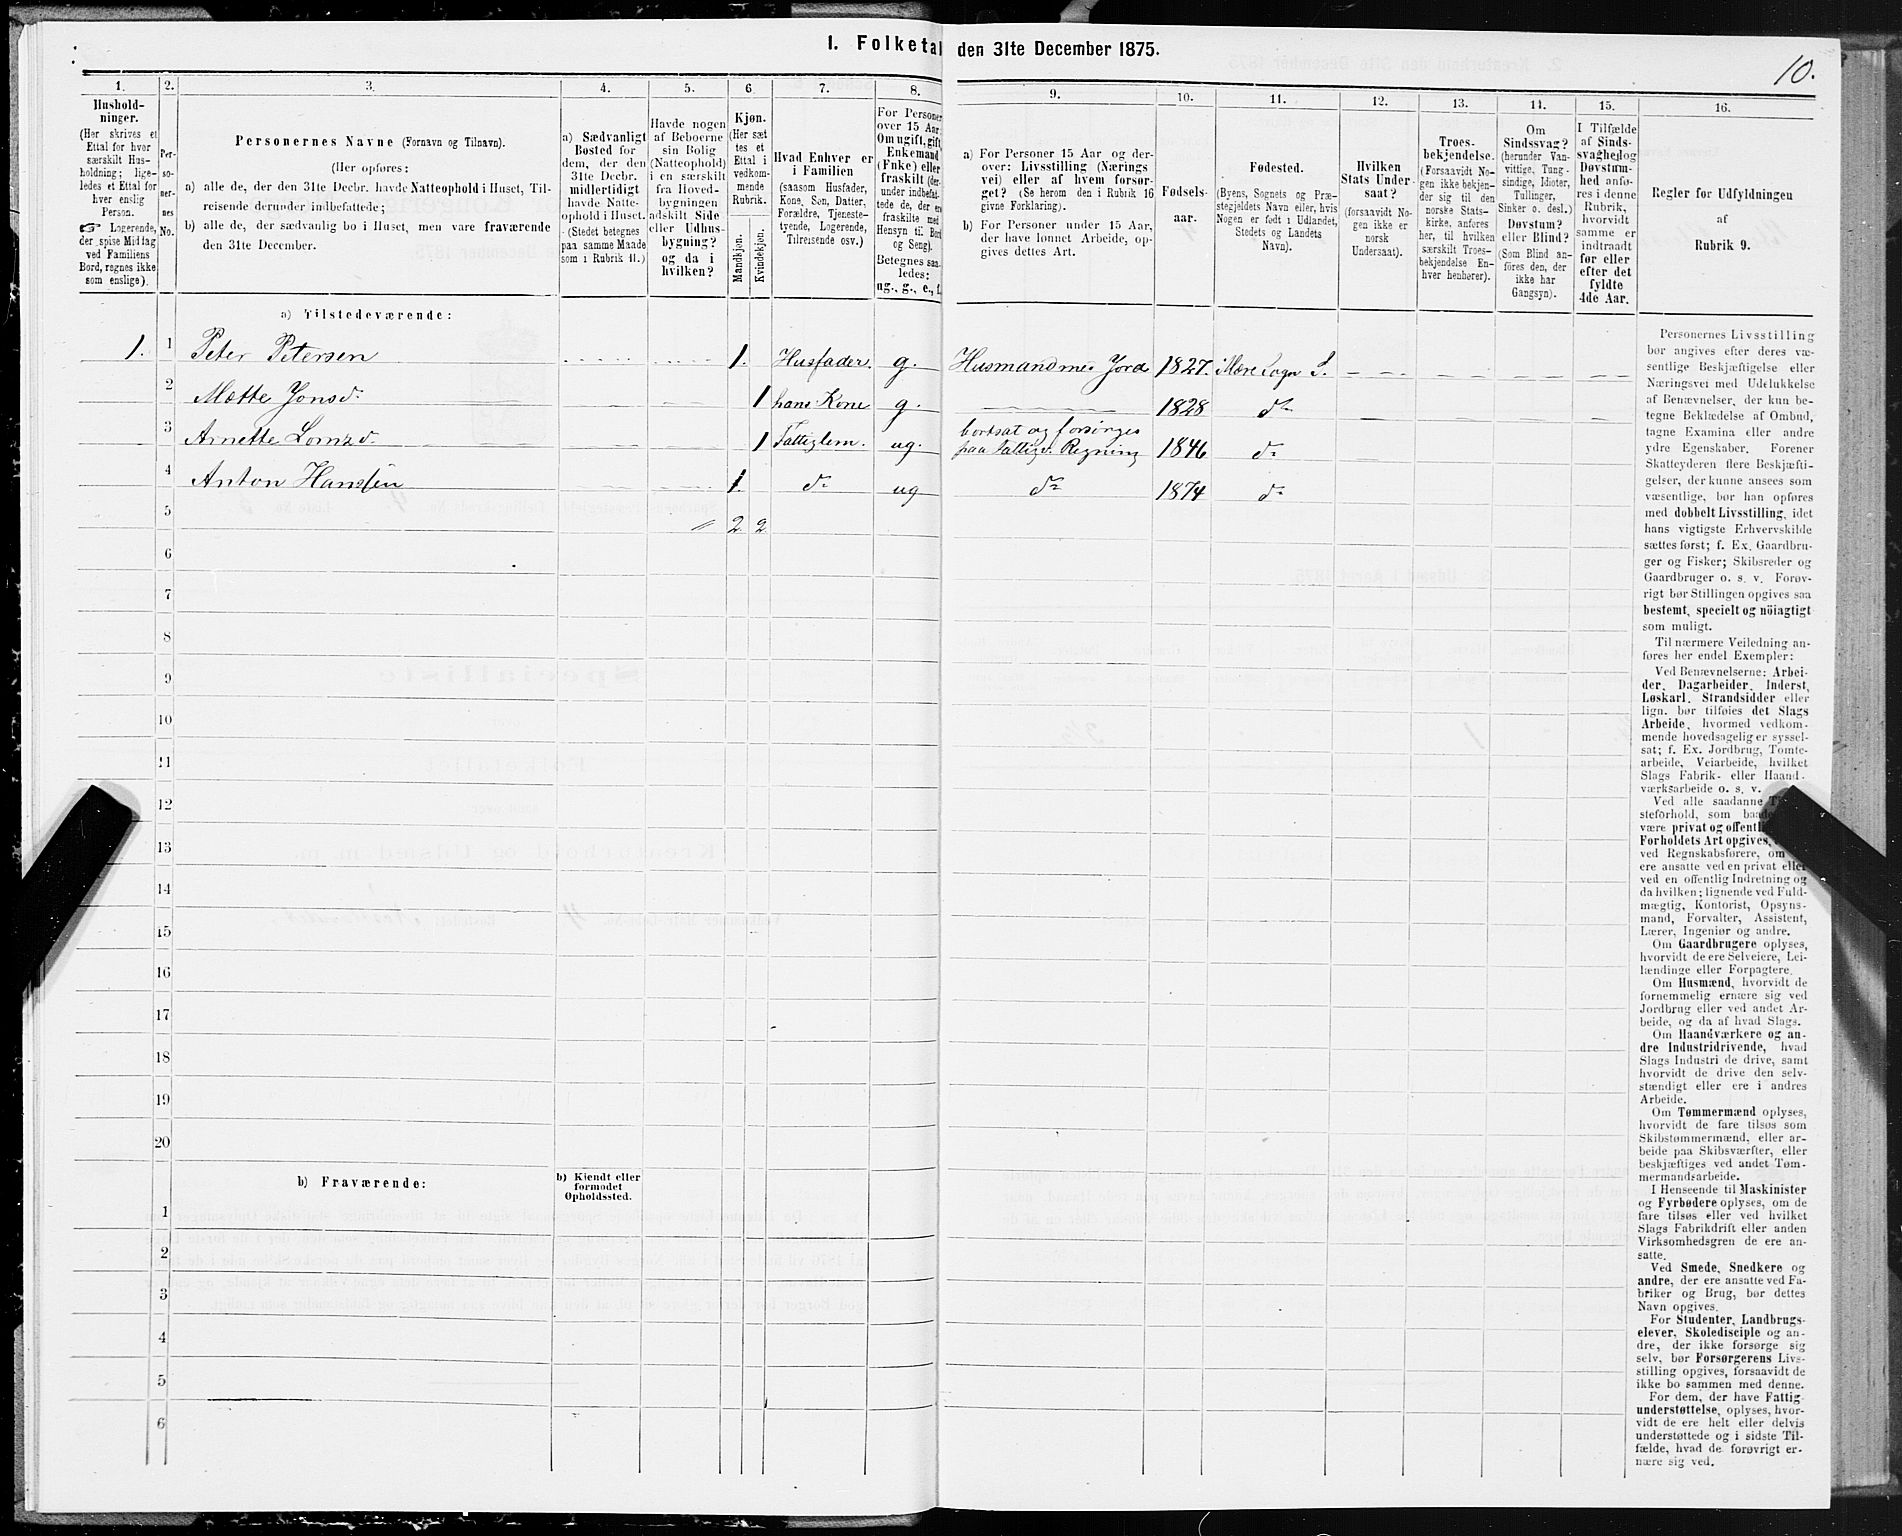 I. Folketal den 31te December 1875.
10.
1. 2. 3. 4. 5. 6. 7. 8. 9. 10. 11. 12. 13. 14. 15. 16.
Hushold-
ninger.
(Her skrives et
Ettal for hver
særskilt Hus-
holdning; lige-
ledes et Ettal for
hver enslig
Person.
☞ Logerende,
der spise Middag
ved Familiens
Bord, regnes ikke
som enslige).
Per-
so-
ner-
nes
No.
Personernes Navne (Fornavn og Tilnavn).
(Her opføres:
a) alle de, der den 31te Decbr. havde Natteophold i Huset, Til-
reisende derunder indbefattede;
b) alle de, der sædvanlig bo i Huset, men vare fraværende
den 31te December.
a) Sædvanligt
Bosted for
dem, der den
31te Decbr.
midlertidigt
havde Natte-
ophold i Huset.
(Stedet betegnes
paa samme Maade
som i Rubrik 11.)
Havde nogen
af Beboerne
sin Bolig
(Natteophold)
i en særskilt
fra Hoved-
bygningen
adskilt Side
eller Udhus-
bygning?
og da i
hvilken?
Kjøn.
(Her sæt
tes et
Ettal i
vedkom-
mende
Rubrik.
Mandkjøn.
Kvindekjøn.
Hvad Enhver er
i Familien
(saasom Husfader,
Kone, Søn, Datter,
Forældre, Tjeneste-
tyende, Logerende,
Tilreisende osv.)
For Personer
over 15 Aar:
Om ugift, gift,
Enkemand
(Enke) eller
fraskilt (der-
under indbefat-
tede de, der ere
fraskilte med
Hensyn til Bord
og Seng).
Betegnes saa-
ledes:
ug., g., e., f.
a) For Personer 15 Aar og der-
over: Livsstilling (Nærings
vei) eller af hvem forsør-
get? (Se herom den i Rubrik 16
givne Forklaring).
b) For Personer under 15 Aar,
der have lønnet Arbeide, op-
gives dettes Art.
Fødsels-
aar.
Fødested.
(Byens, Sognets og Præ-
stegjeldets Navn eller, hvis
Nogen er født i Udlandet,
Stedets og Landets
Navn).
Hvilken
Stats Under-
saat?
(forsaavidt No-
gen ikke er
norsk
Undersaat).
Troes-
bekjendelse.
(Forsaavidt No-
gen ikke bekjen-
der sig til den
norske Stats-
kirke, anføres
her, til hvilken
særskilt Troes-
bekjendelse En-
hver henhører).
Om
Sindssvag?
(herunder Van-
vittige, Tung-
sindige, Idioter,
Tullinger,
Sinker o. desl.)
Døvstum?
eller Blind?
(Som Blind an-
føres den, der
ikke har
Gangsyn).
I Tilfælde
af Sinds-
svaghed og
Døvstum-
hed anfø-
res i denne
Rubrik,
hvorvidt
samme er
indtraadt
før eller
efter det
fyldte
4de Aar.
Regler for Udfyldningen
af
Rubrik 9.
a) Tilstedeværende:
1. 1 Peter Petersen 1. Husfader. g. Husmand med Jord 1827. Mære Sogn S.
2 Mette Jonsd. 1 hans Kone g. 1828 do
3 Arnette Lornzd. 1 Fattiglem. ug. bortsat og forsörges
paa Fattigv. Regning 1846 do
4 Anton Hanssen 1. do ug do 1874 do
5 2 2
6
7
8
9
10
11
12
13
14
15
16
17
18
19
20
b) Fraværende:
b) Kjendt eller
formodet
Opholdssted.
1
2
3
4
5
6
Personernes Livsstilling
bør angives efter deres væ-
sentlige Beskjæftigelse eller
Næringsvei med Udelukkelse
af Benævnelser, der kun be-
tegne Beklædelse af Ombud,
tagne Examina eller andre
ydre Egenskaber. Forener
Skatteyderen flere Beskjæfti-
gelser, der kunne ansees som
væsentlige, bør han opføres
med dobbelt Livsstilling, idet
hans vigtigste Erhvervskilde
sættes først; f. Ex. Gaardbru-
ger og Fisker; Skibsreder og
Gaardbruger o. s. v. Forøv-
rigt bør Stillingen opgives saa
bestemt, specielt og nöiagtigt
som muligt.
Til nærmere Veiledning an-
føres her endel Exempler:
Ved Benævnelserne: Arbei-
der, Dagarbeider, Inderst,
Løskarl, Strandsidder eller
lign. bør tilføies det Slags
Arbeide, hvormed vedkom-
mende hovedsagelig er syssel-
sat; f. Ex. Jordbrug, Tomte-
arbeide, Veiarbeide, hvilket
Slags Fabrik- eller Haand-
værksarbeide o. s. v.
Ved alle saadanne
steforhold, som baade
være privat og offentl
Forholdets Art opgives,
ved Regnskabsførere, om
ere ansatte ved en privat eller
ved en offentlig Indretning og
da hvilken; lignende ved Fuld-
mægtig, Kontorist, Opsyns-
mand, Forvalter, Assistent,
Lærer, Ingeniør og andre.
Om Gaardbrugere oplyses,
hvorvidt de ere Selveiere, Lei-
lændinge eller Forpagtere.
Om Husmænd, hvorvidt de
fornemmelig ernære sig ved
Jordbrug eller ved andet Ar-
beide, og da af hvad Slags.
Om Haandværkere og an-
dre Industridrivende, hvad
Slags Industri de drive, samt
hvorvidt de drive den selv-
stændigt eller ere i andres
Arbeide.
Om Tømmermænd oplyses,
hvorvidt de fare tilsøs som
Skibstømmermænd, eller ar-
beide paa Skibsværfter, eller
beskjæftiges ved andet Tøm-
mermandsarbeide.
I Henseende til Maskinister
og Fyrbødere oplyses, om de
fare tilsøs eller ved hvilket
Slags Fabrikdrift eller anden
Virksomhedsgren de ere an-
satte.
Ved Smede, Snedkere og
andre, der ere ansatte ved Fa-
briker og Brug, bør dettes
Navn opgives.
For Studenter, Landbrugs-
elever, Skoledisciple og an-
dre, der ikke forsørge sig
selv, bør Forsørgerens Livs-
stilling opgives, forsaavidt de
ikke bo sammen med denne.
For dem, der have Fattig-
understøttelse, oplyses, hvor-
vidt de ere helt eller delvis
understøttede og i sidste Til-
fælde, hvad de forøvrigt er-
nære sig ved.